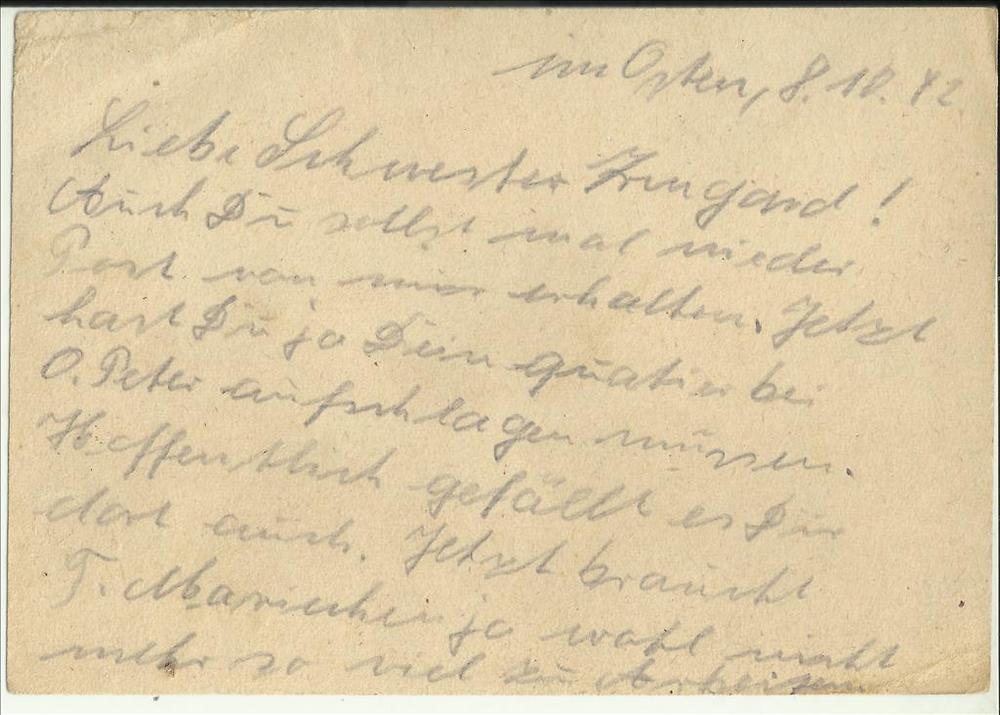 im Osten, 8.10.42
Liebe Schwester Irmgard!
Auch Du sollst mal wieder
Post von mir erhalten. Jetzt
hast Du ja Dein Quatier bei
O. Peter aufschlagen müssen.
Hoffentlich gefällt es Dir
dort auch. Jetzt braucht
T. Mariechen ja wohl nicht
mehr so viel zu Arbeiten.